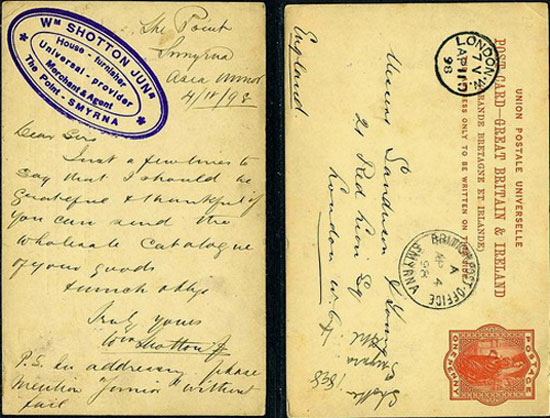 Wm SHOTTON JUNR
House - furnisher
Universal - provider
Merchant & Agent
The Point - SMYRNA
The Point
Smyrna
Asia Minor
4/IV/98
Dear Sirs
Just a few lines to
say that I should be
grateful & thankful if
you can send the
wholesale Catalogue
of your goods
& much oblige
Truly yours
Wm Shotton Jr
P.S. In addressing please
mention "Junior" without
fail
UNION POSTALE UNIVERSELLE
POST CARD - GREAT BRITAIN & IRELAND
(GRANDE BRETAGNE ET IRLANDE)
ADDRESS ONLY TO BE WRITTEN ON THIS SIDE
LONDON. W.C
AP 11
98
BRITISH POST-OFFICE
SMYRNA
A
AP 4
98
Messrs Sanderson &
21 Red Lion Sq
London W.C.
England
Shotton
Smyrna
Apl
1898
POSTAGE
ONE PENNY